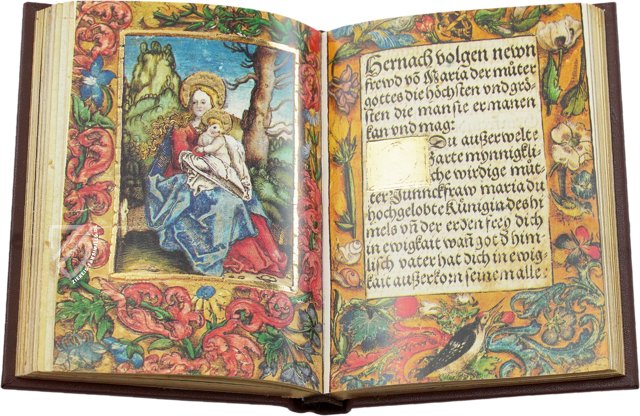 Hernach volgen newn
frewd võ Maria der můter
gottes die höchsten vnd grö
sten die man sie ermanen
kan vnd mag:
Du außerwelte
zarte mynnigkli
che wirdige můt
ter Junnckfraw maria du
hochgelobte Künigia des hi
mels vñ der erden frey dich
in ewigkait wañ got d him
lisch vater hat dich in ewig
kait außerkorn seine alle: